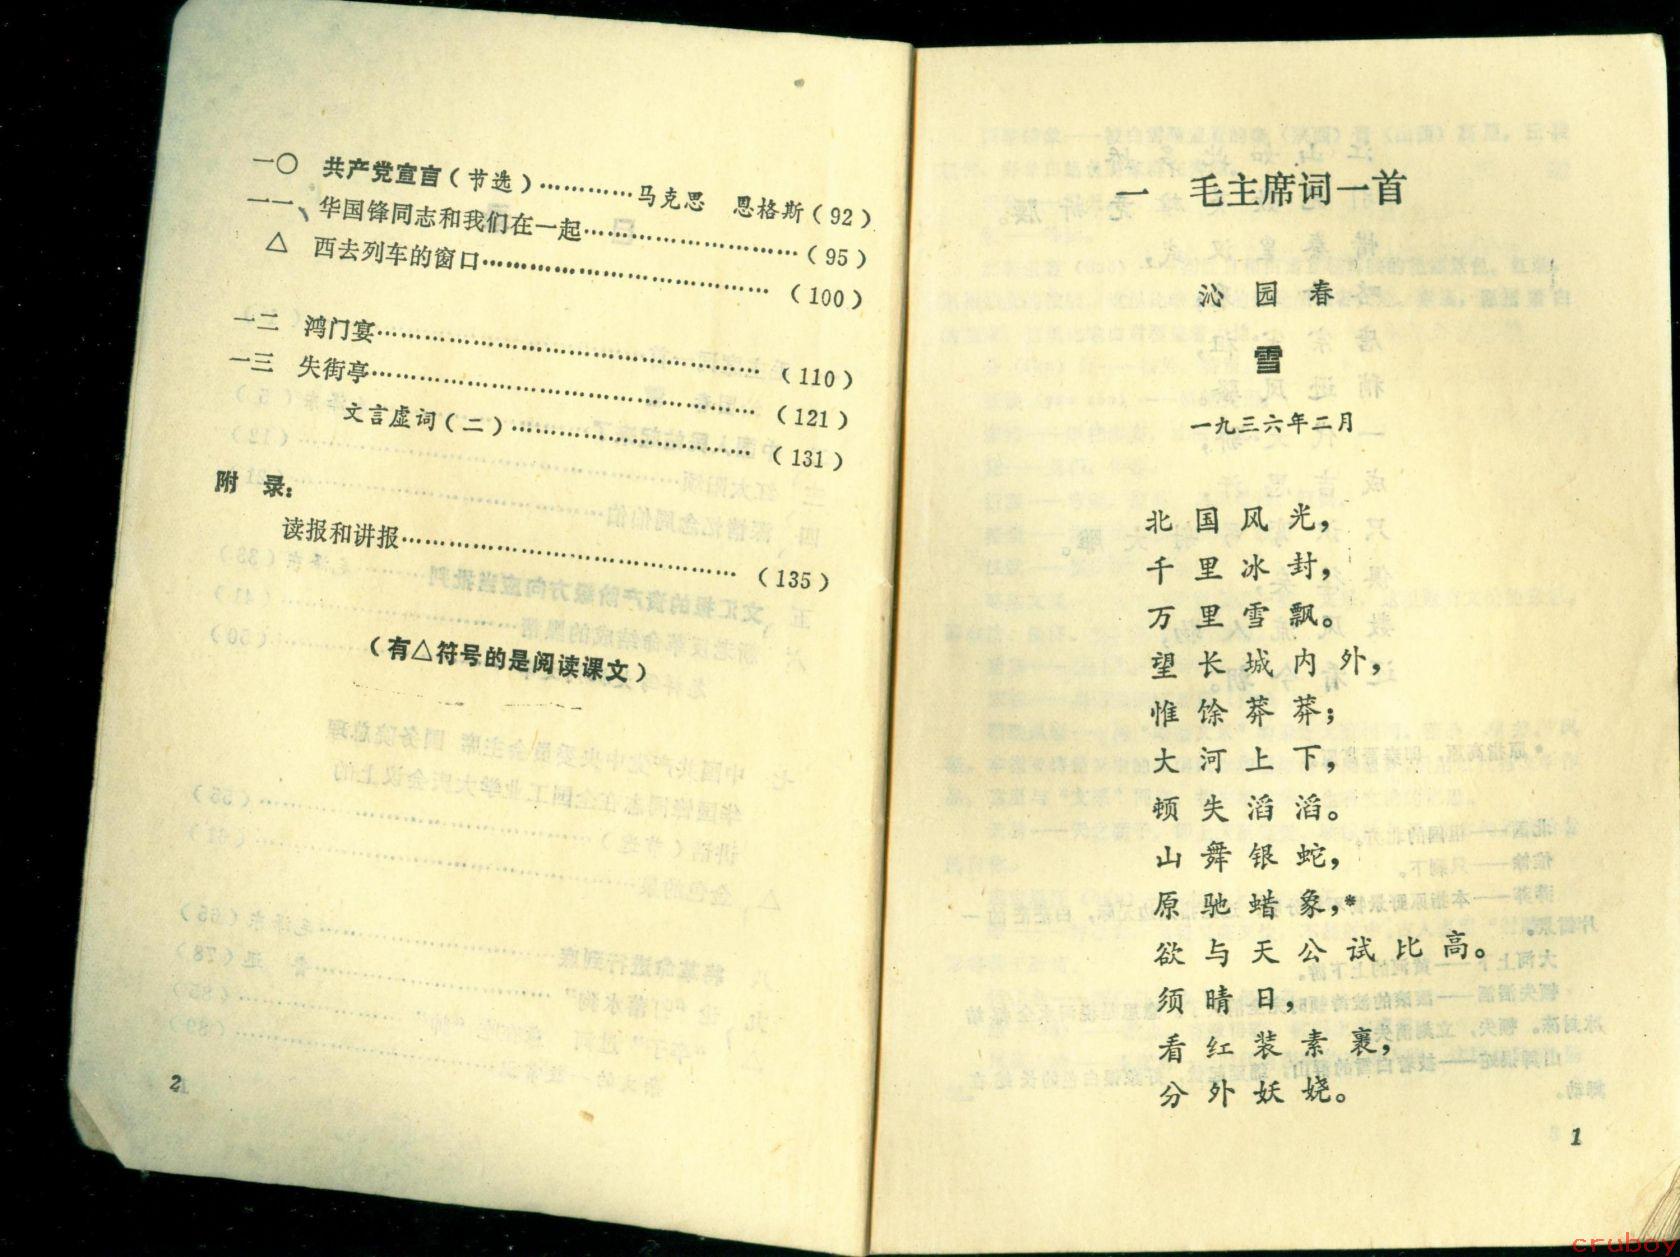 一〇 共产党宣言(节选)…………马克思 恩格斯(92)
一一、华国锋同志和我们在一起………………………(95)
△ 西去列车的窗口………………………………(100)
一二 鸿门宴…………………………………………(110)
一三 失街亭…………………………………………(121)
文言虚词(二)…………………………(131)
附 录:
读报和讲报……………………………………(135)
(有△符号的是阅读课文)
2
一 毛主席词一首
沁园春
雪
一九三六年二月
北国风光,
千里冰封,
万里雪飘。
望长城内外,
惟馀莽莽;
大河上下,
顿失滔滔。
山舞银蛇,
原驰蜡象,*
欲与天公试比高。
须晴日,
看红装素裹,
分外妖娆。
1
cruboy